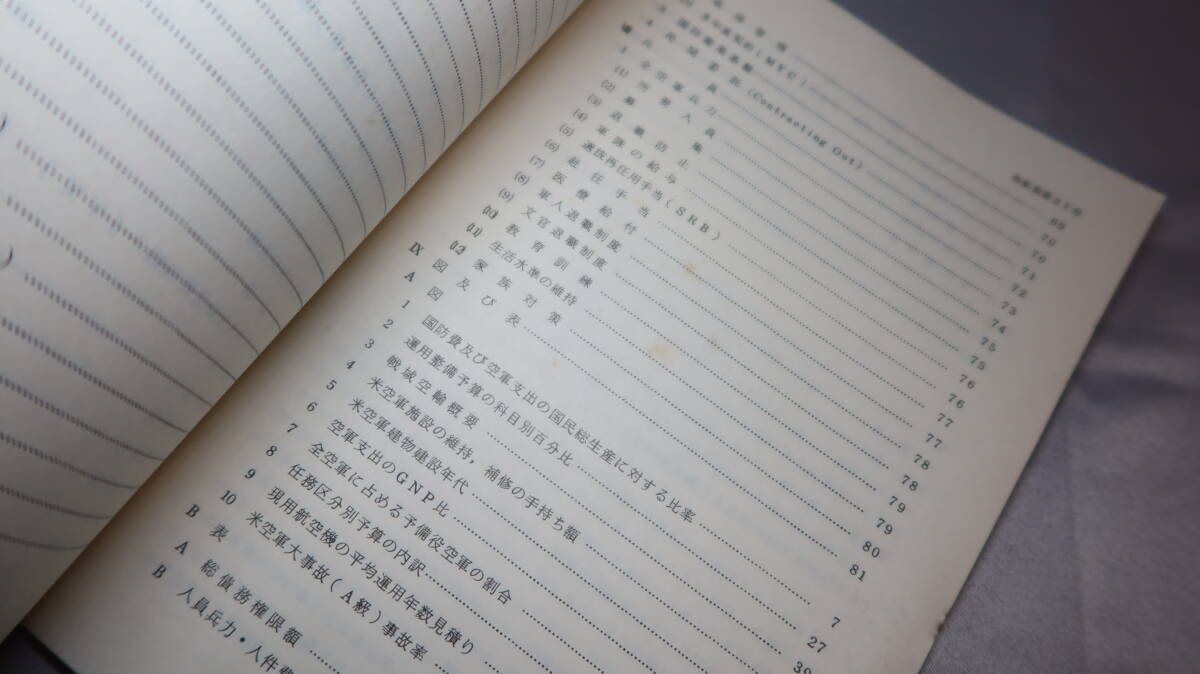 多年度契約(MYC) 70
3 国防産業基盤 70
4 民間委託(Contracting Out) 71
兵員 72
1 全空軍兵力 73
(1) 所要人員 74
(2) 募集 75
(3) 退職防止 75
(4) 軍隊の給与 76
(5) 選抜再任用手当(SRB) 76
(6) 赴任手当 77
(7) 医療給付 77
(8) 軍人退職制度 78
(9) 文官退職制度 78
(10) 教育訓練 79
(11) 生活水準の維持 79
(12) 家族対策 80
Ⅸ 図及び表 81
A 図
1 国防費及び空軍支出の国民総生産に対する比率 7
2 運用整備予算の科目別百分比 27
3 戦域空輸概要 39
4 米空軍施設の維持,補修の手持ち額
5 米空軍建物建設年代
6 空軍支出のGNP比
7 全空軍に占める予備役空軍の割合
8 任務区分別予算の内訳
9 現用航空機の平均運用年数見積り
10 米空軍大事故(A級)事故率
B 表
A 総債務権限額
B 人員兵力・人件費